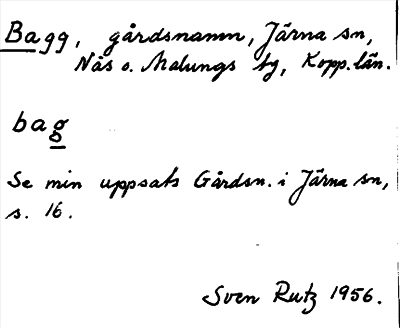 Bagg, gårdsnamn, Järna sn,
Nås o. Malungs tg, Kopp. län.
bag
Se min uppsats Gårdsn. i Järna sn,
s. 16.
Sven Rutz 1956.